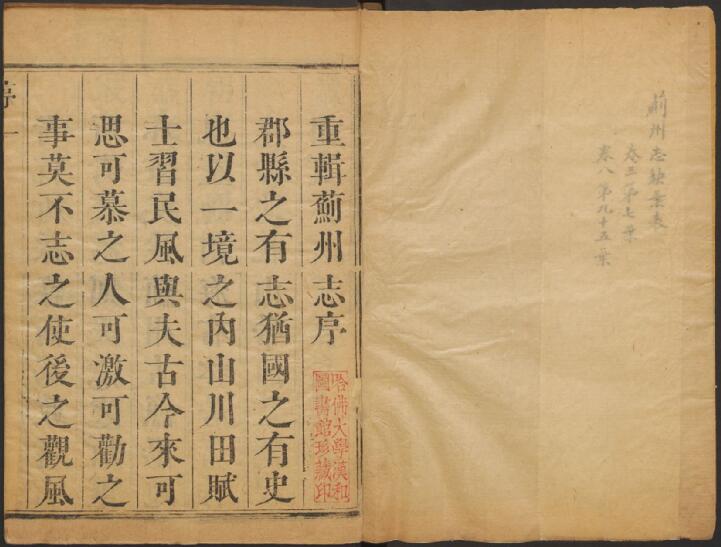 薊州志缺葉表
卷三第七葉
卷八第九十五葉
重輯薊州志序
郡縣之有志猶國之有史
也以一境之內山川田賦
士習民風與夫古今來可
思可慕之人可激可勸之
事莫不志之使後之觀風
哈佛大學漢和
圖書館珍藏印
序
一